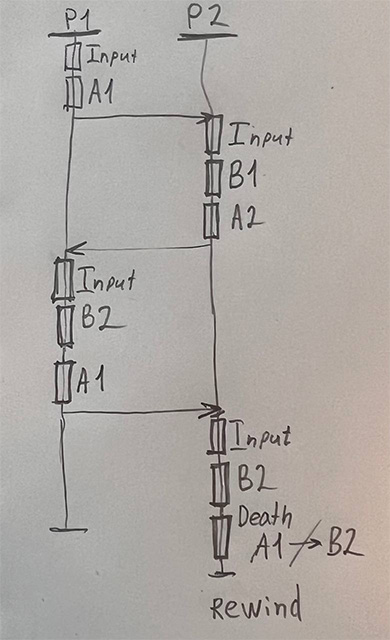 P1 P2
Input
A1
Input
B1
A2
Input
B2
A1
Input
B2
Death
A1 → B2
Rewind